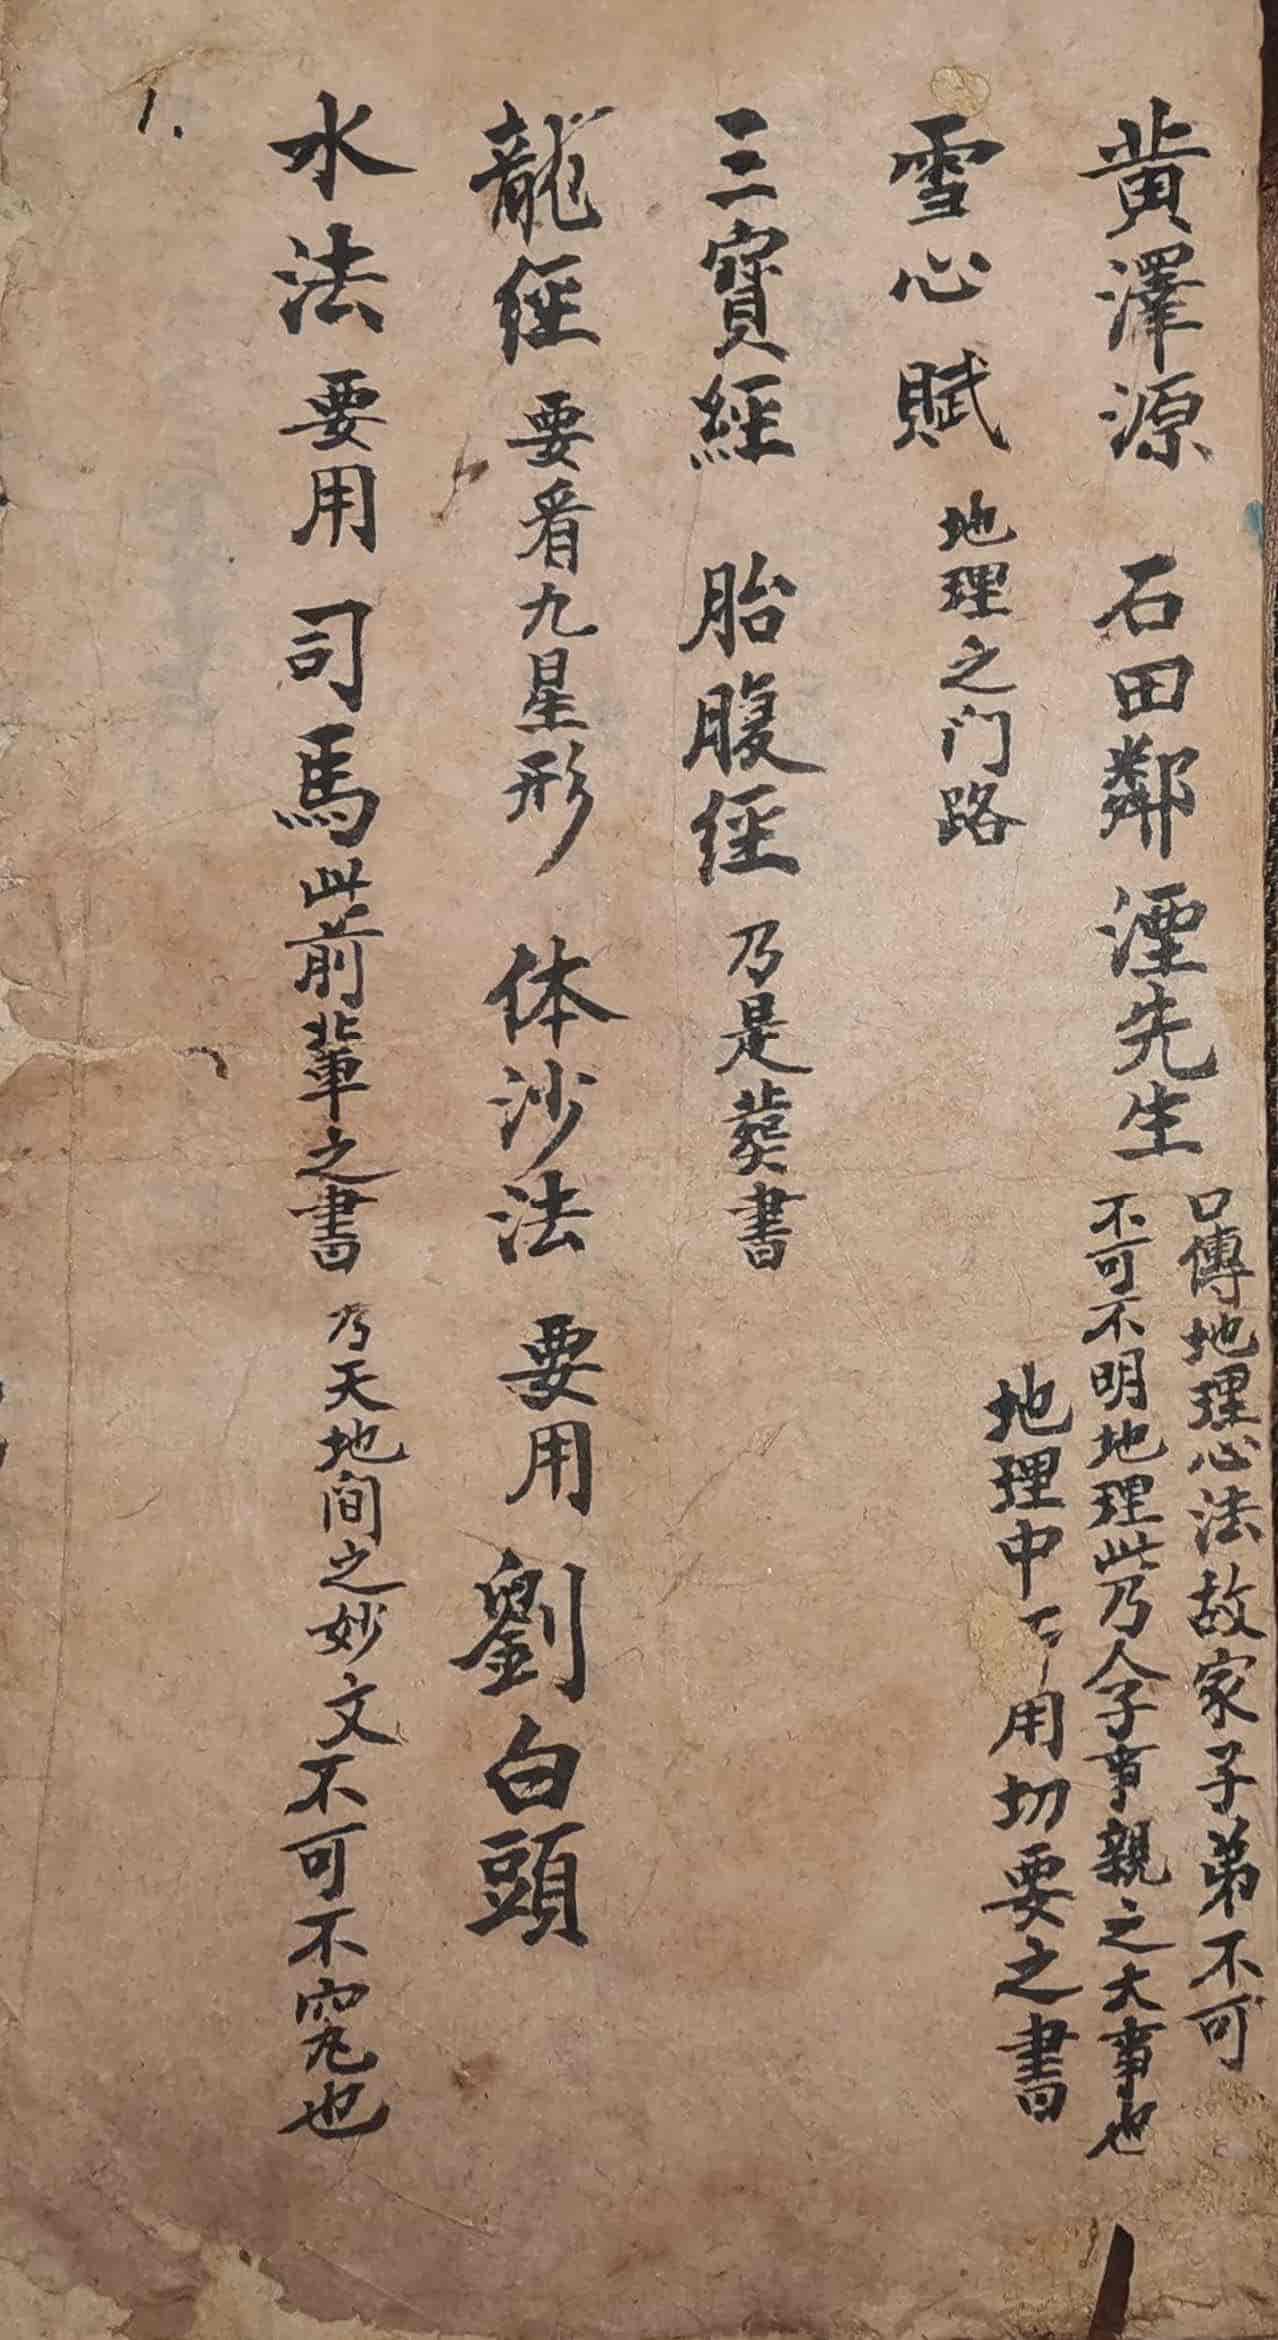 黄澤源 石田鄰湮先生 口傳地理心法故家子弟不可
不可不明地理此乃人子事親之大事也
雪心賦 地理之门路 地理中用切要之書
三寶經 胎腹經 乃是葬書
龍經 要看九星形 体沙法 要用 劉白頭
水法 要用 司馬 此前輩之書 乃天地間之妙文不可不究也
1.